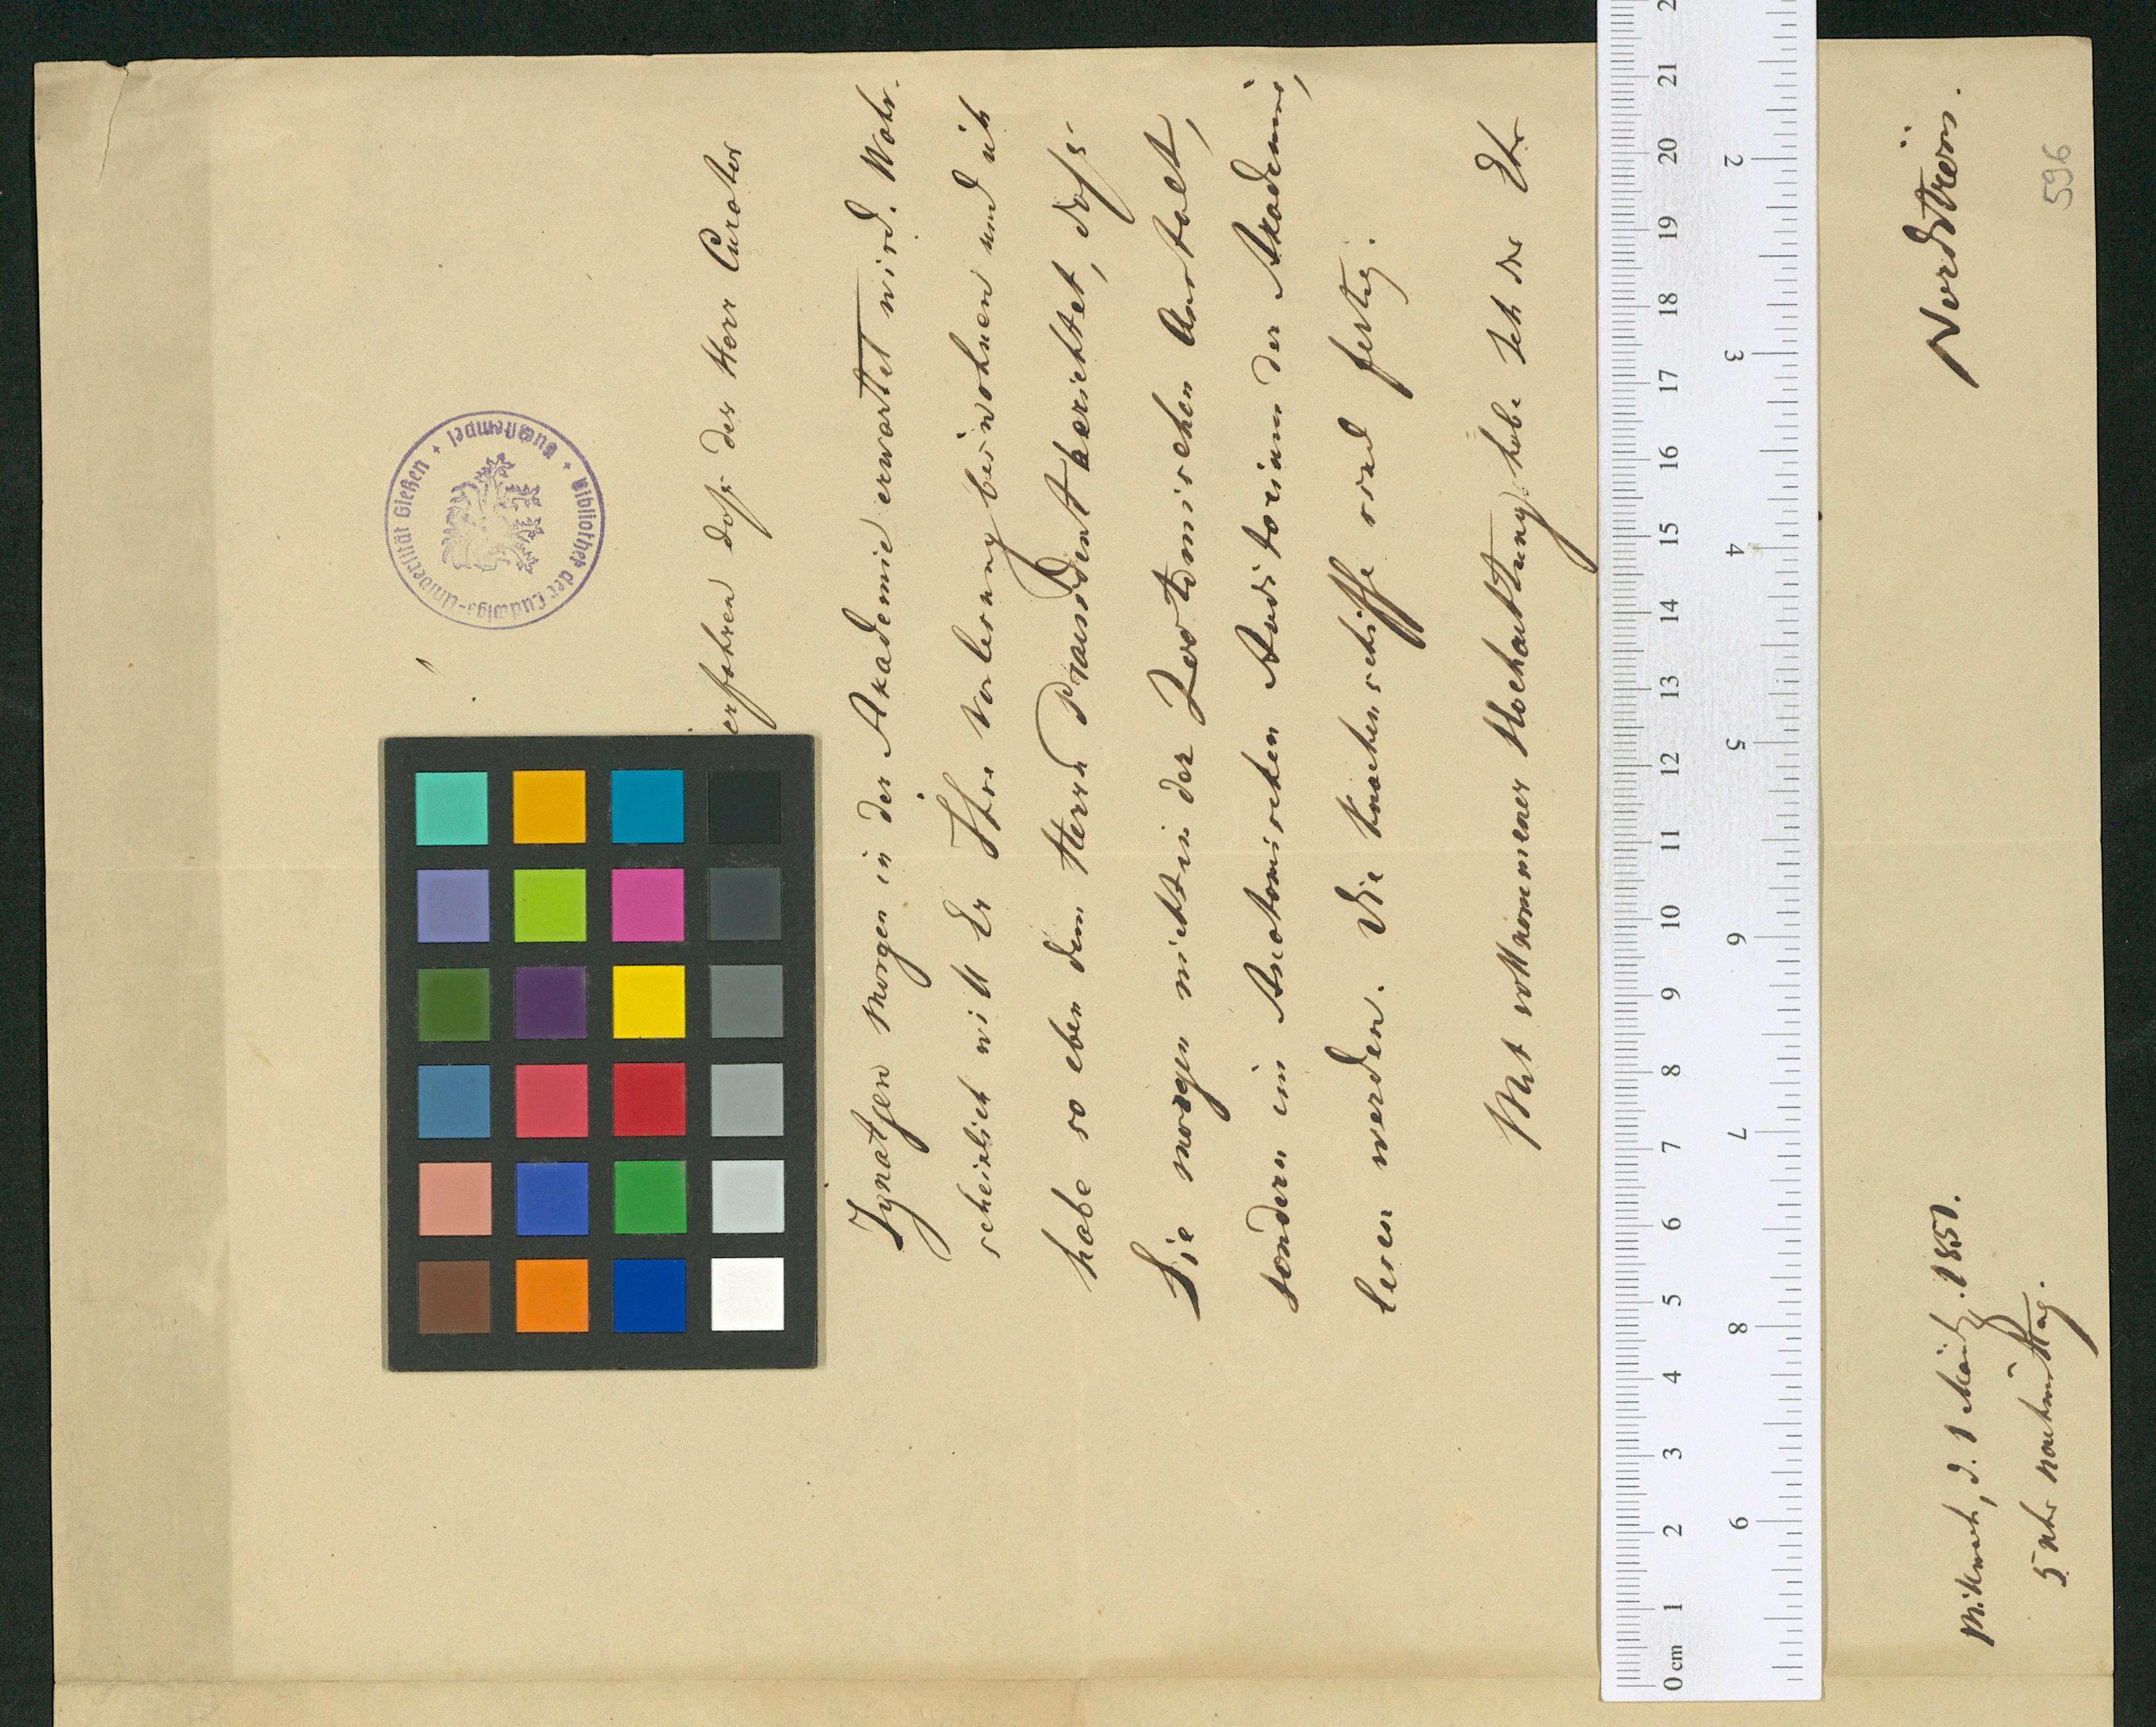 erfahren dass der Herr Curator
Ignatjew morgen in der Akademie erwartet wird. Wahr-
scheinlich will Er Ihre Vorlesung beiwohnen und ich
habe so eben dem Herrn Praesident berichtet, dass
Sie morgen nicht in der Zootomischen Anstalt,
sondern im Anatomischen Auditorium der Akademie,
lesen werden. Die Knochenschliffe sind fertig.
Mit vollkommener Hochachtung habe ich die Ehr
Nordström.
Mittwoch, d. 1 März. 1850.
5 Uhr nachmittag.
596
Bibliothek der Ludwigs-Universität Gießen
Buchstempel
0 cm 1 2 3 4 5 6 7 8 9 10 11 12 13 14 15 16 17 18 19 20 21 2
2 3 4 5 6 7 8 9